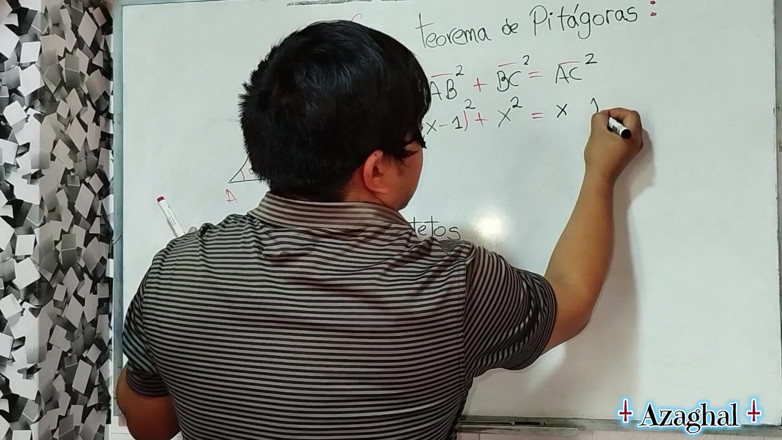 teorema de Pitágoras :
AB² + BC² = AC²
x - 1)² + x² = x 1
A
tetos
Azaghal